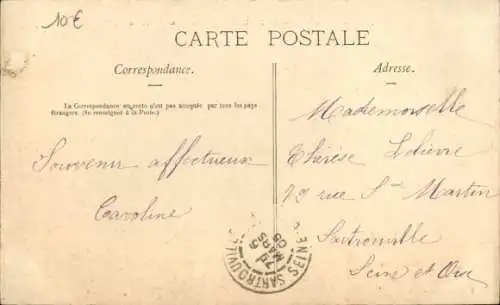 10€
CARTE POSTALE
Correspondance.
Adresse.
La Correspondance au recto n'est pas acceptée par tous les pays
étrangers. (Se renseigner à la Poste).
Souvenir affectueux
Caroline
Mademoiselle
Thérèse Lelièvre
rue St Martin
Sartrouville
Seine et Oise
SARTROUVILLE
SEINE
MARS
05